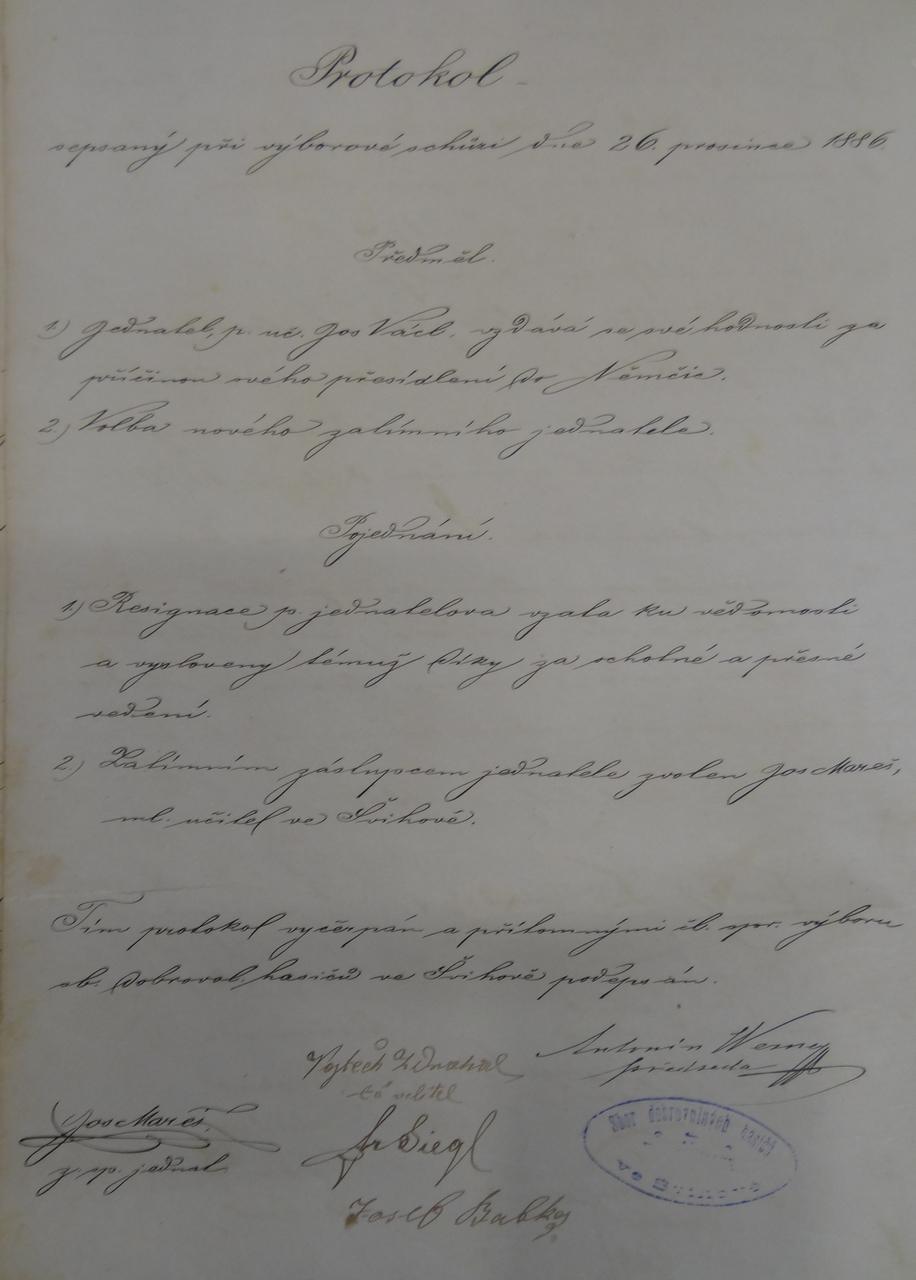 Protokol
sepsaný při výborové schůzi dne 26. prosince 1886.
Předmět.
1.) Jednatel, p. uč. Jos Václ. vzdává se své hodnosti za
příčinou svého přesídlení do Němčic.
2.) Volba nového zatímního jednatele.
Pojednání.
1.) Resignace p. jednatelova vzata ku vědomosti
a vysloveny témuž díky za ochotné a přesné
vedení.
2.) Zatímním zástupcem jednatele zvolen Jos Mareš,
ml. učitel ve Švihově.
Tím protokol vyčerpán a přítomnými čl. spr. výboru
sb. dobrovol. hasičů ve Švihově podepsán.
Antonín
předseda
Vojtěch
velitel
Jos Mareš,
z. sp. jednat
Fr Siegl
Josef
Sbor dobrovolných hasičů
ve Švihově